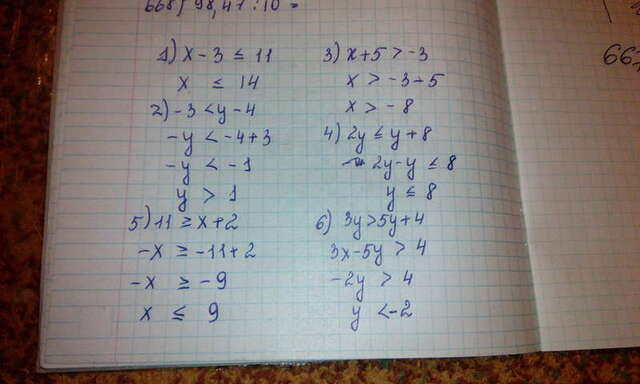 668) 98,41 : 10 =
1) x - 3 ≤ 11
x ≤ 14
2) -3 < y - 4
-y < -4 + 3
-y < -1
y > 1
5) 11 ≥ x + 2
-x ≥ -11 + 2
-x ≥ -9
x ≤ 9
3) x + 5 > -3
x > -3 + 5
x > -8
4) 2y ≤ y + 8
2y - y ≤ 8
y ≤ 8
6) 3y > 5y + 4
3x - 5y > 4
-2y > 4
y < -2